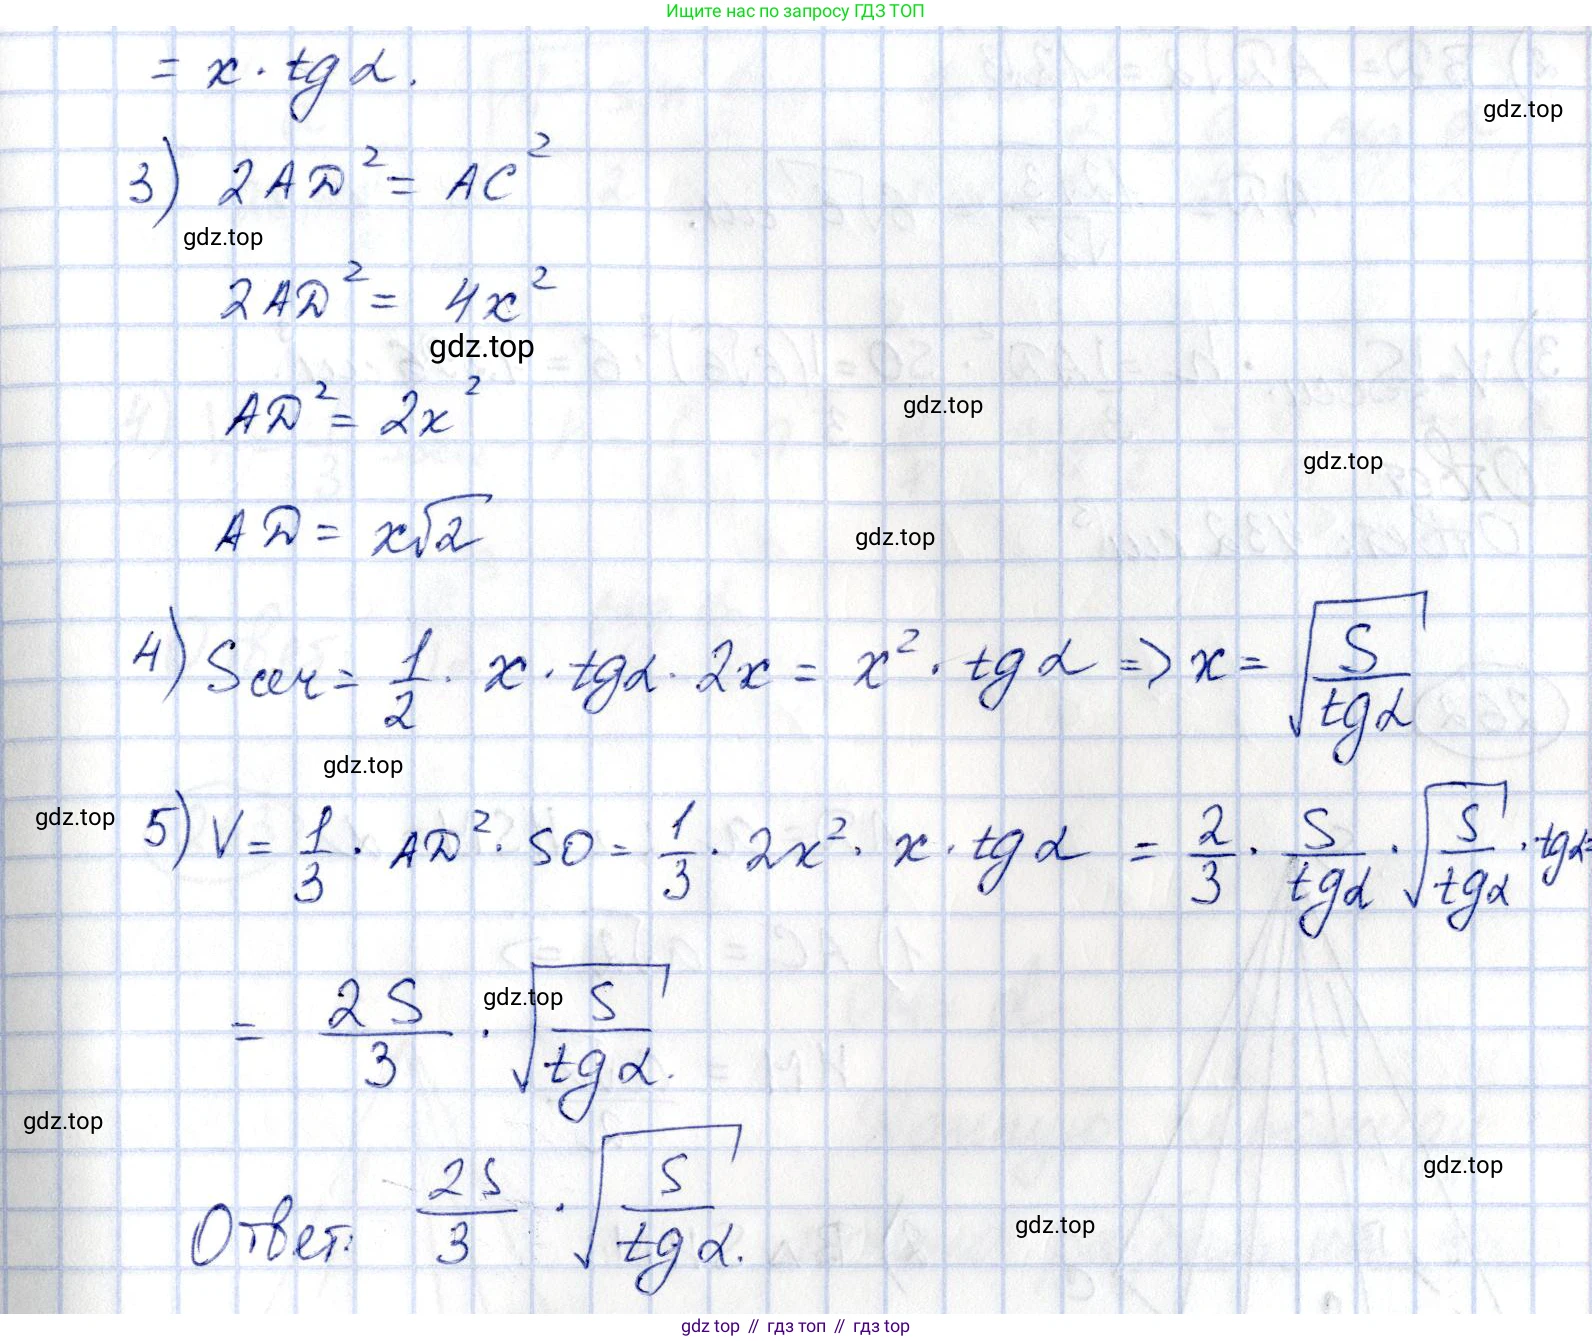 Ищите нас по запросу ГДЗ ТОП
= x · tg α.
gdz.top
3) 2AD² = AC²
gdz.top
2AD² = 4x²
gdz.top
AD² = 2x²
gdz.top
gdz.top
AD = x√2
gdz.top
4) Sсеч = 1/2 · x · tgα · 2x = x² · tg α => x = √(S/tgα)
gdz.top
gdz.top
5) V = 1/3 · AD² · SO = 1/3 · 2x² · x · tg α = 2/3 · S/tgα · √(S/tgα) · tgα =
= 2S/3 · √(S/tg α).
gdz.top
gdz.top
gdz.top
Ответ: 2S/3 · √(S/tg α).
gdz.top
gdz top // гдз топ // гдз top